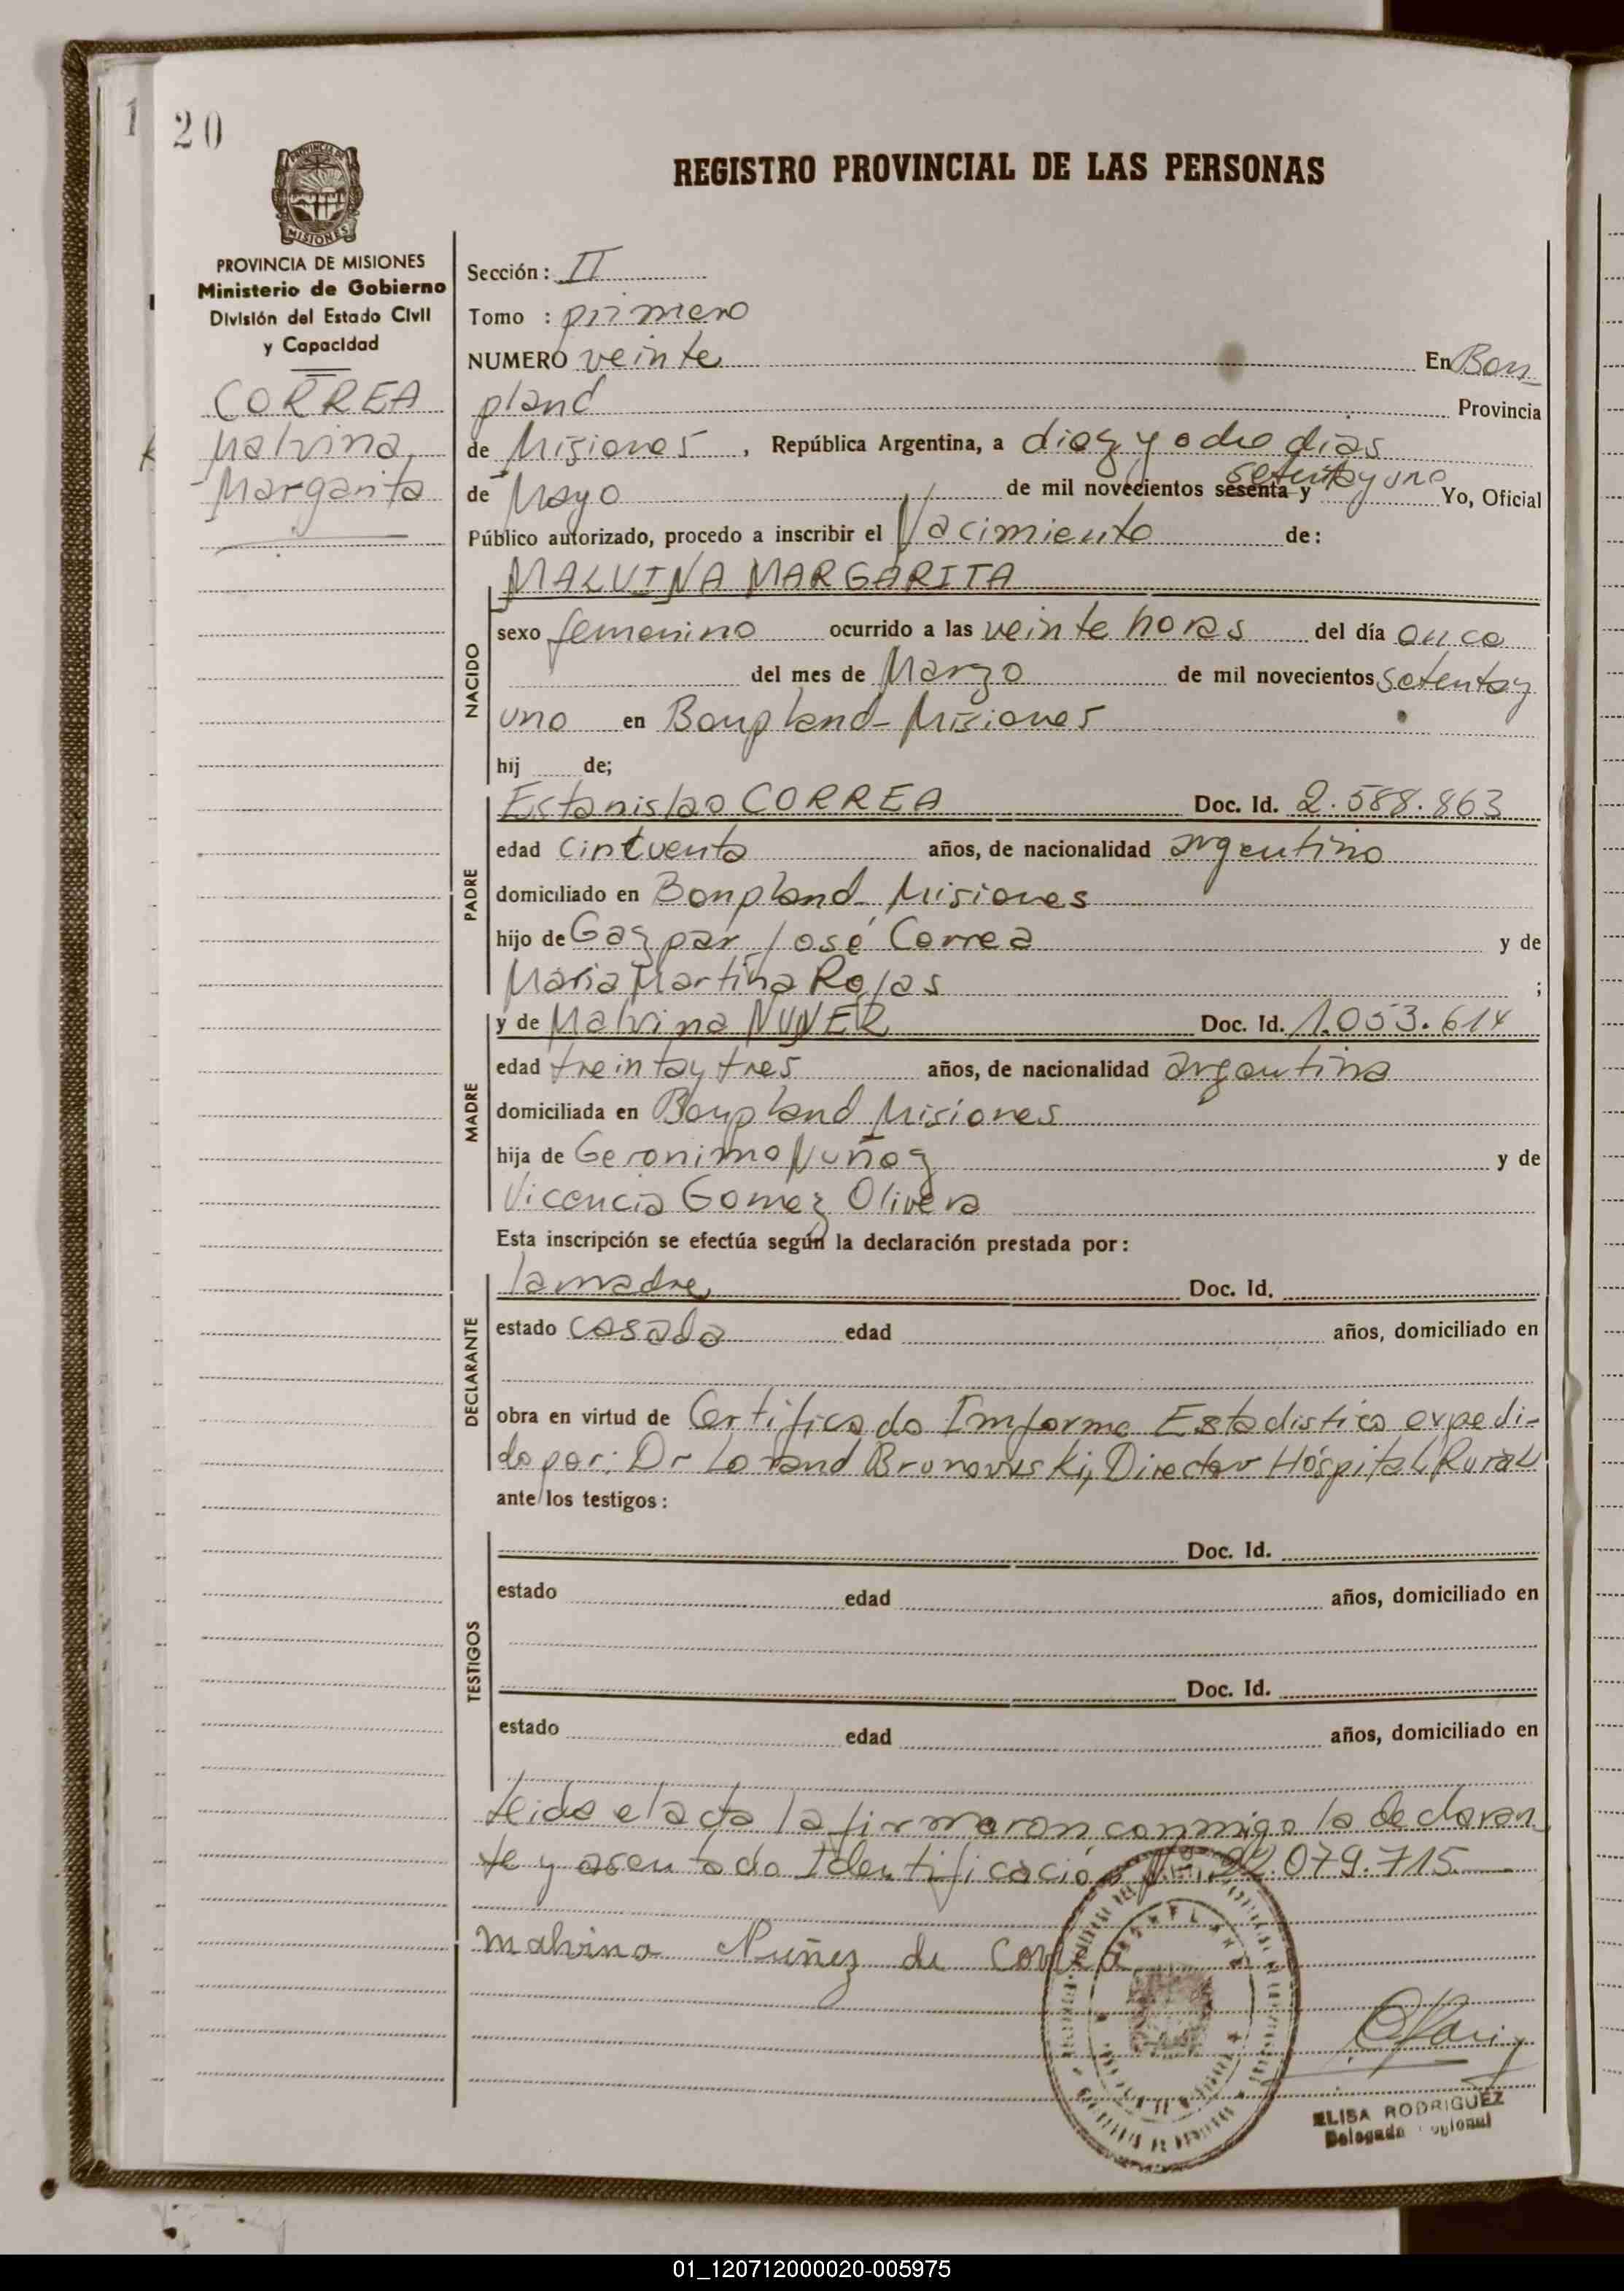 1
20
PROVINCIA DE
MISIONES
REGISTRO PROVINCIAL DE LAS PERSONAS
PROVINCIA DE MISIONES
Ministerio de Gobierno
División del Estado Civil
y Capacidad
CORREA
Malvina
Margarita
Sección: II
Tomo : primero
NUMERO veinte En Bon-
pland Provincia
de Misiones, República Argentina, a diez y ocho dias
de Mayo de mil novecientos sesenta y setenta y uno Yo, Oficial
Público autorizado, procedo a inscribir el Nacimiento de:
MALVINA MARGARITA
NACIDO
sexo femenino ocurrido a las veinte horas del día once
del mes de Marzo de mil novecientos setenta y
uno en Bonpland-Misiones
hij de;
PADRE
Estanislao CORREA Doc. Id. 2.588.863
edad cincuenta años, de nacionalidad argentino
domiciliado en Bonpland Misiones
hijo de Gazpar José Correa y de
Maria Martina Rojas ;
MADRE
y de Malvina NUÑEZ Doc. Id. 1.053.614
edad treinta y tres años, de nacionalidad argentina
domiciliada en Bonpland Misiones
hija de Geronimo Nuñez y de
Vicencia Gomez Olivera
Esta inscripción se efectúa según la declaración prestada por:
DECLARANTE
la madre Doc. Id.
estado casada edad años, domiciliado en
obra en virtud de Certificado Informe Estadistico expedi-
do por: Dr Lorand Director Hospital Rural
ante los testigos:
TESTIGOS
Doc. Id.
estado edad años, domiciliado en
Doc. Id.
estado edad años, domiciliado en
Leida el acta la firmaron conmigo la declaran-
te y asentado Identificación Nº 22.079.715
malvina Nuñez de Correa
ELISA RODRIGUEZ
Delegada
01_120712000020-005975